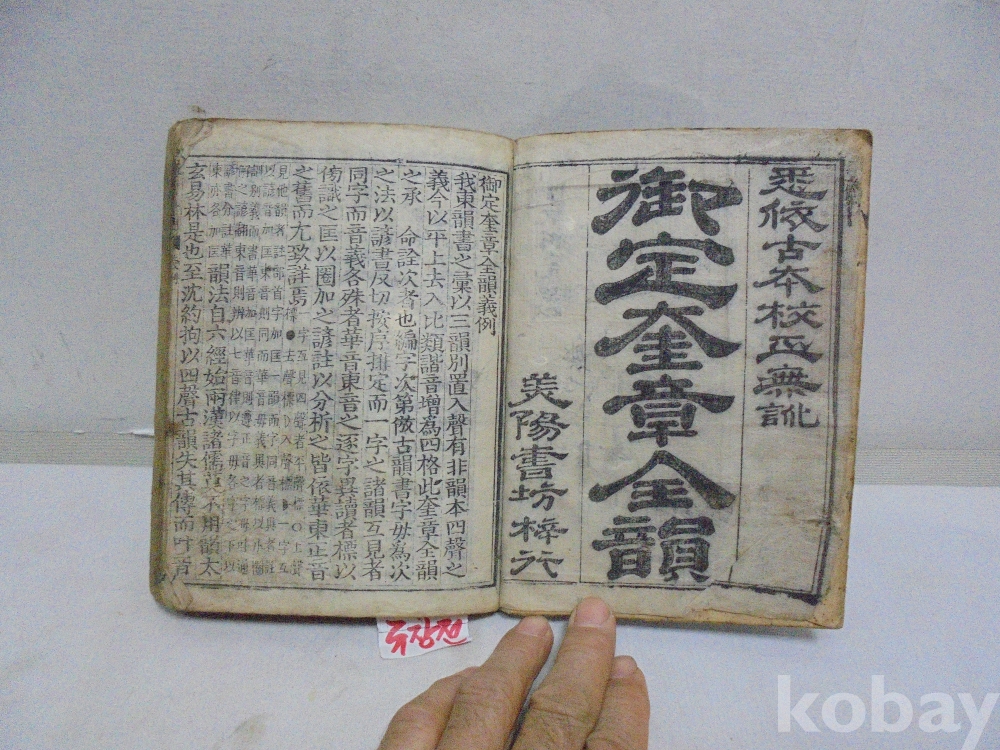 悉依古本校正無訛
御定奎章全韻
美陽書坊梓行
御定奎章全韻義例
我東韻書之彙以三韻別置入聲有非韻本四聲之
義今以平上去入比類諧音增為四格此奎章全韻
之承 命詮次者也編字次第倣古韻書字母為次
之法以諺書反切按序排定而一字之諸韻互見者
同字而音義各殊者華音東音之逐字異讀者標以
傍識之匡以圈加之諺註以分析之皆依華東正音
之舊而尤致詳焉
韻法自六經始兩漢諸儒莫不用韻太
玄易林是也至沈約拘以四聲古韻失其傳而叶音
주장전
kobay